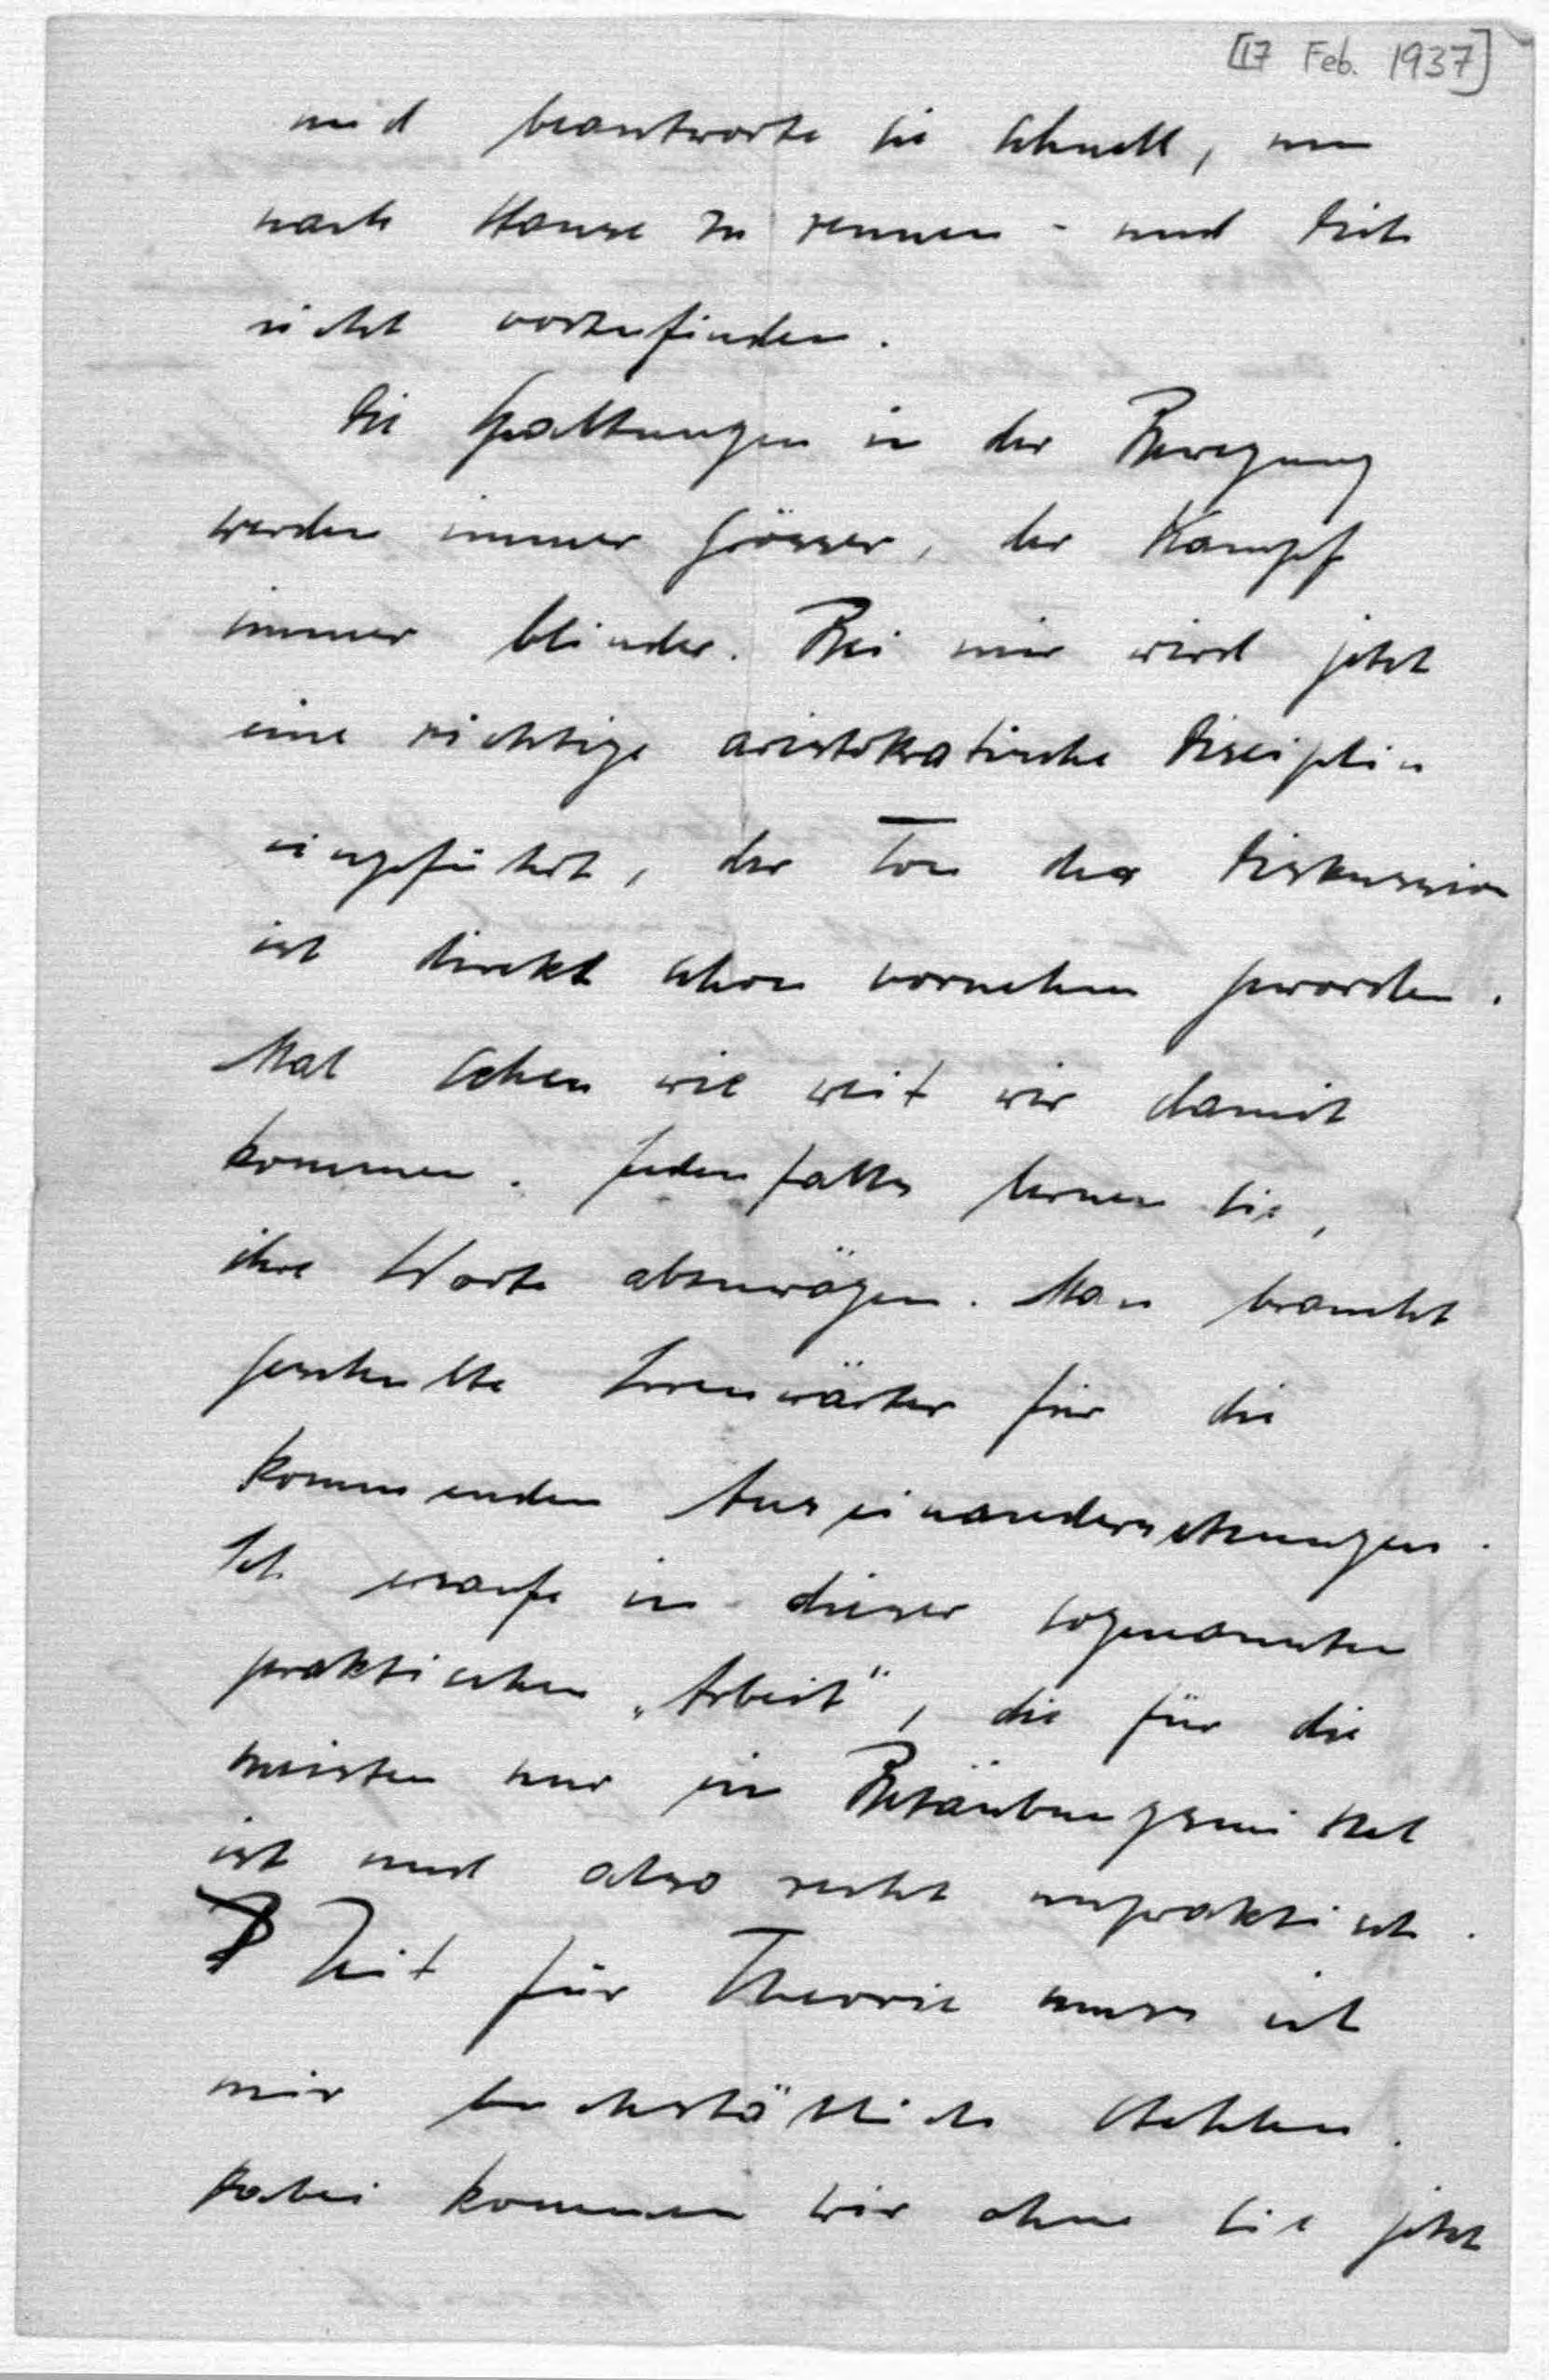 [17 Feb. 1937]
und beantworte sie schnell, um
nach Hause zu rennen - und Dich
nicht vorzufinden.
Die Spaltungen in der Bewegung
werden immer grösser, der Kampf
immer blinder. Bei mir wird jetzt
eine richtige aristokratische Disciplin
eingeführt, der Ton der Diskussion
ist direkt schon vornehm geworden.
Mal sehen wie weit wir damit
kommen. Jedenfalls lernen sie,
ihre Worte abzuwägen. Man braucht
geschulte Irrenwärter für die
kommenden Auseinandersetzungen.
Ich ersaufe in dieser sogenannten
praktischen „Arbeit", die für die
meisten nur ein Betäubungsmittel
ist und also recht unpraktisch.
Zeit für Theorie muss ich
mir buchstäblich stehlen.
Dabei kommen wir ohne sie jetzt